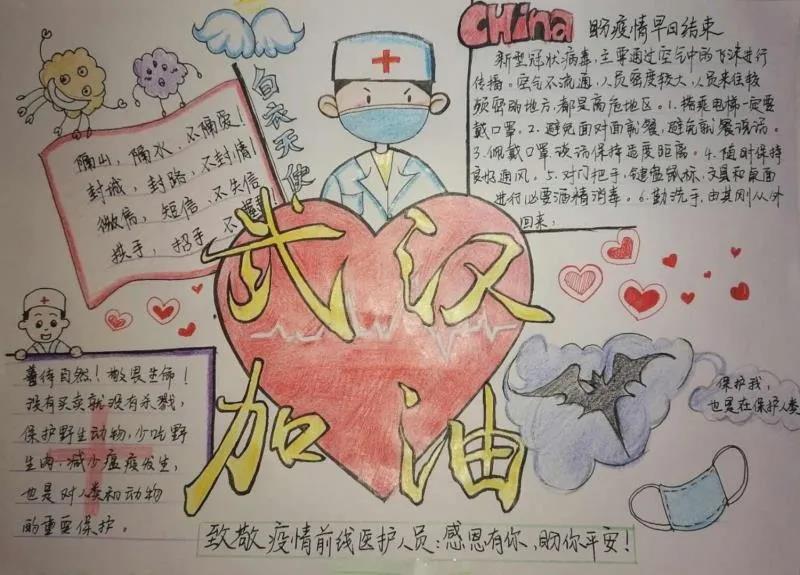 China 盼疫情早日结束
新型冠状病毒，主要通过空气中的飞沫进行
传播。空气不流通，人员密度较大，人员来往较
频密的地方，都是高危地区。1.搭乘电梯一定要
戴口罩。2.避免面对面就餐，避免就餐谈话。
3.佩戴口罩谈话保持适度距离。4.随时保持
良好通风。5.对门把手，键盘鼠标，文具和桌面
进行必要酒精消毒。6.勤洗手，由其刚从外
回来，
白衣天使
隔山，隔水，不隔爱！
封城，封路，不封情
微信，短信，不失信
拱手，招手，不握手！
武汉
加油
善待自然！敬畏生命！
没有买卖就没有杀戮，
保护野生动物，少吃野
生肉，减少瘟疫发生，
也是对人类和动物
的重要保护。
保护我，
也是在保护人类
致敬疫情前线医护人员：感恩有你、盼你平安！